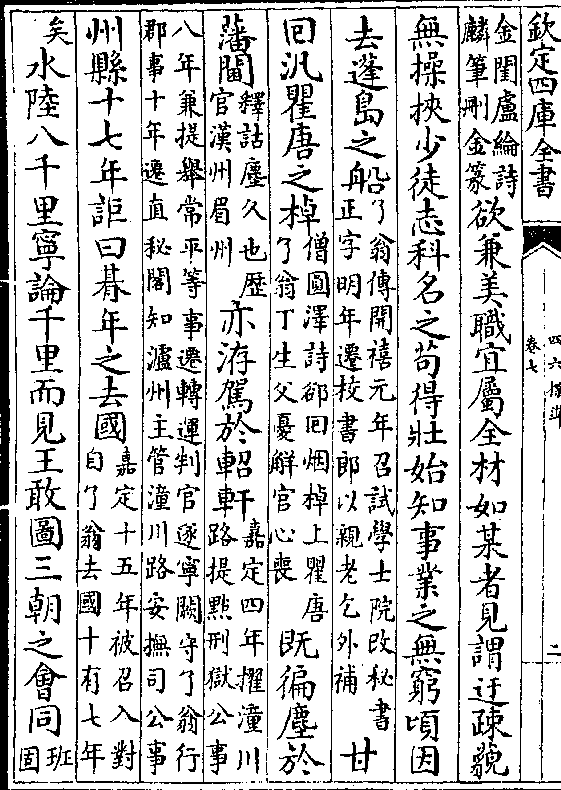 欽定四庫全書
四六標準
卷七
二
金閨盧綸詩
麟筆刪金篆
欲兼美職宜屬全材如某者見謂迂疎藐
無操挾少徒志科名之苟得壯始知事業之無窮頃因
去蓬島之船
了翁傳開禧元年召試學士院改秘書
正字明年遷校書郎以親老乞外補
甘
囘汎瞿唐之棹
僧圓澤詩郤囘烟棹上瞿唐
了翁丁生父憂解官心喪
既徧塵於
藩閫
釋詁塵久也歴
官漢州眉州
亦洊駕於軺軒
嘉定四年擢潼川
路提點刑獄公事
八年兼提舉常平等事遷轉運判官遂寧闕守了翁行
郡事十年遷直秘閣知瀘州主管潼川路安撫司公事
州縣十七年詎曰朞年之去國
嘉定十五年被召入對
自了翁去國十有七年
矣
水陸八千里寧論千里而見王敢圖三朝之會同
班
固